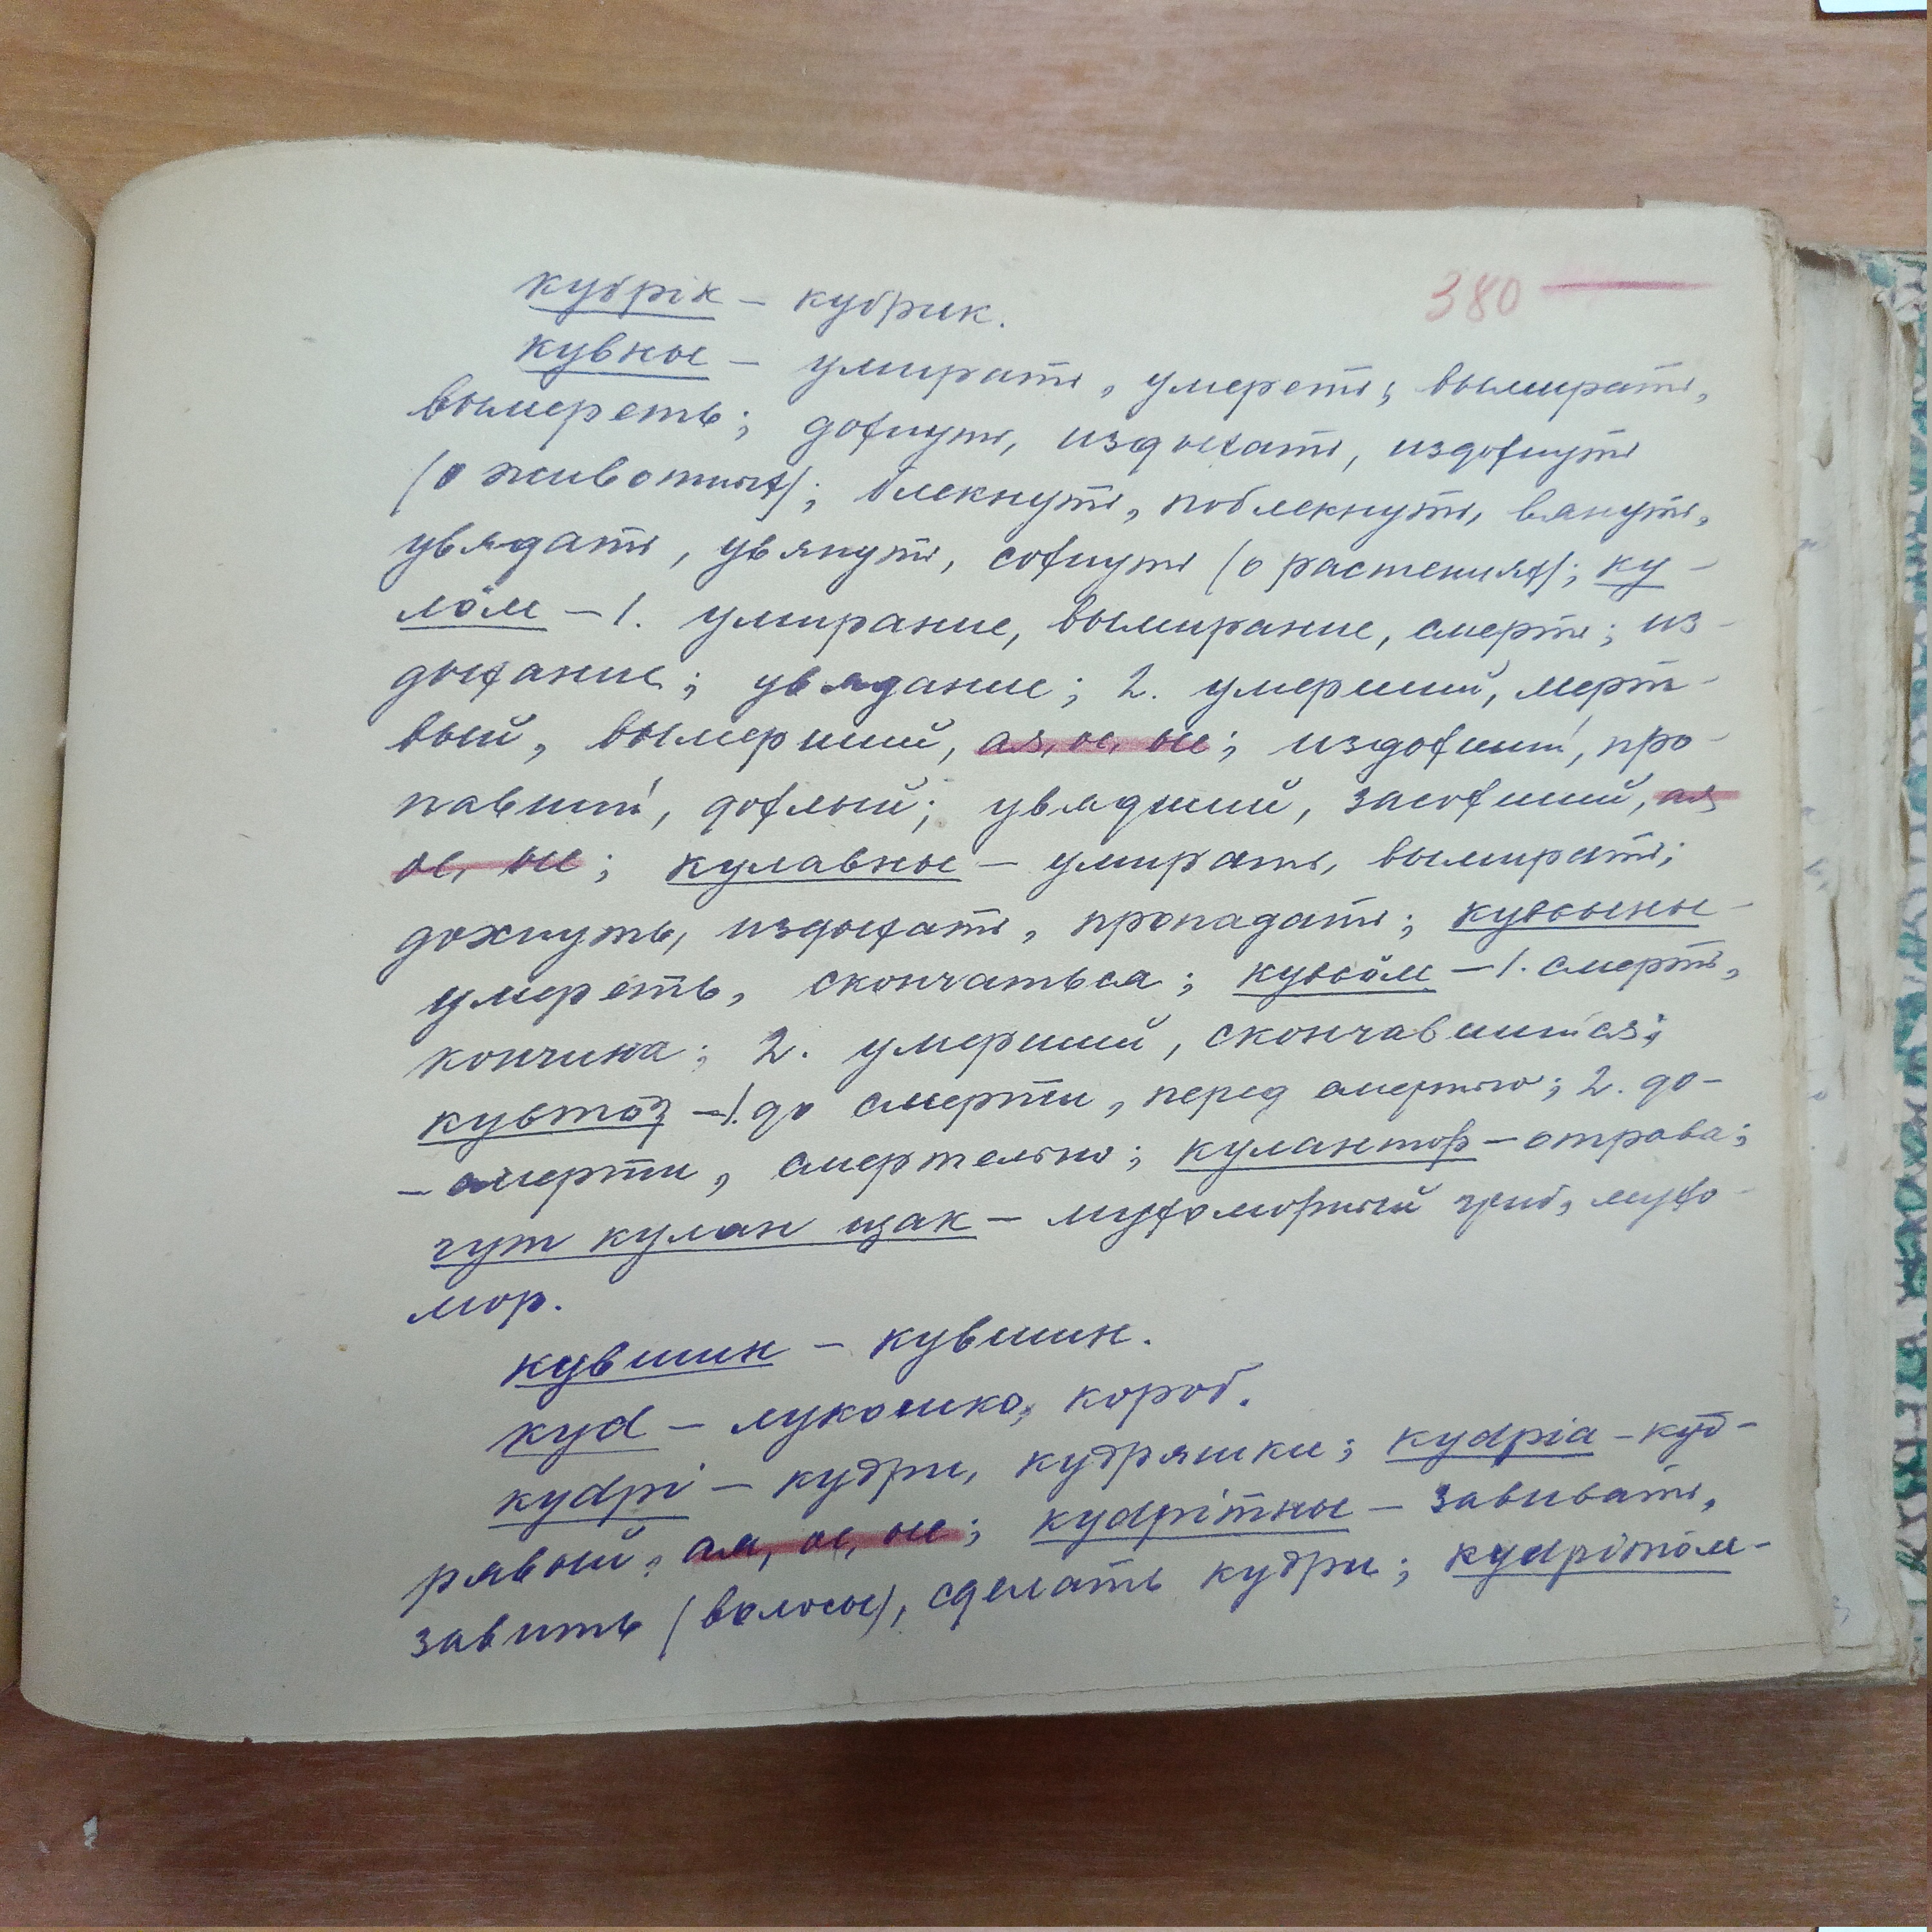 380
кубрiк – кубрик.
кувны – умирать, умереть; вымирать,
вымереть; дохнуть, издыхать, издохнуть
(о животных); блекнуть, поблекнуть, вянуть,
увядать, увянуть, сохнуть (о растениях); ку-
лӧм – 1. умирание, вымирание, смерть; из-
дыхание; увядание; 2. умерший, мерт-
вый, вымерший, ая, ое, ые; издохший, про-
павший, дохлый; увядший, засохший, ая
ое, ые; кулавны – умирать, вымирать;
дохнуть, издыхать, пропадать; кувсьыны –
умереть, скончаться; кувсьӧм – 1. смерть,
кончина; 2. умерший, скончавшийся;
кувтӧԇ – 1. до смерти, перед смертью; 2. до-
– смерти, смертельно; кулантор – отрава;
гут кулан щак – мухоморный гриб, мухо-
мор.
кувшин – кувшин.
куd – лукошко, короб.
куdрi – кудри, кудряшки; куdрiа – куд-
рявый, ая, ое, ые; куdрiтны – завивать,
завить (волосы), сделать кудри; куdрiтӧм –